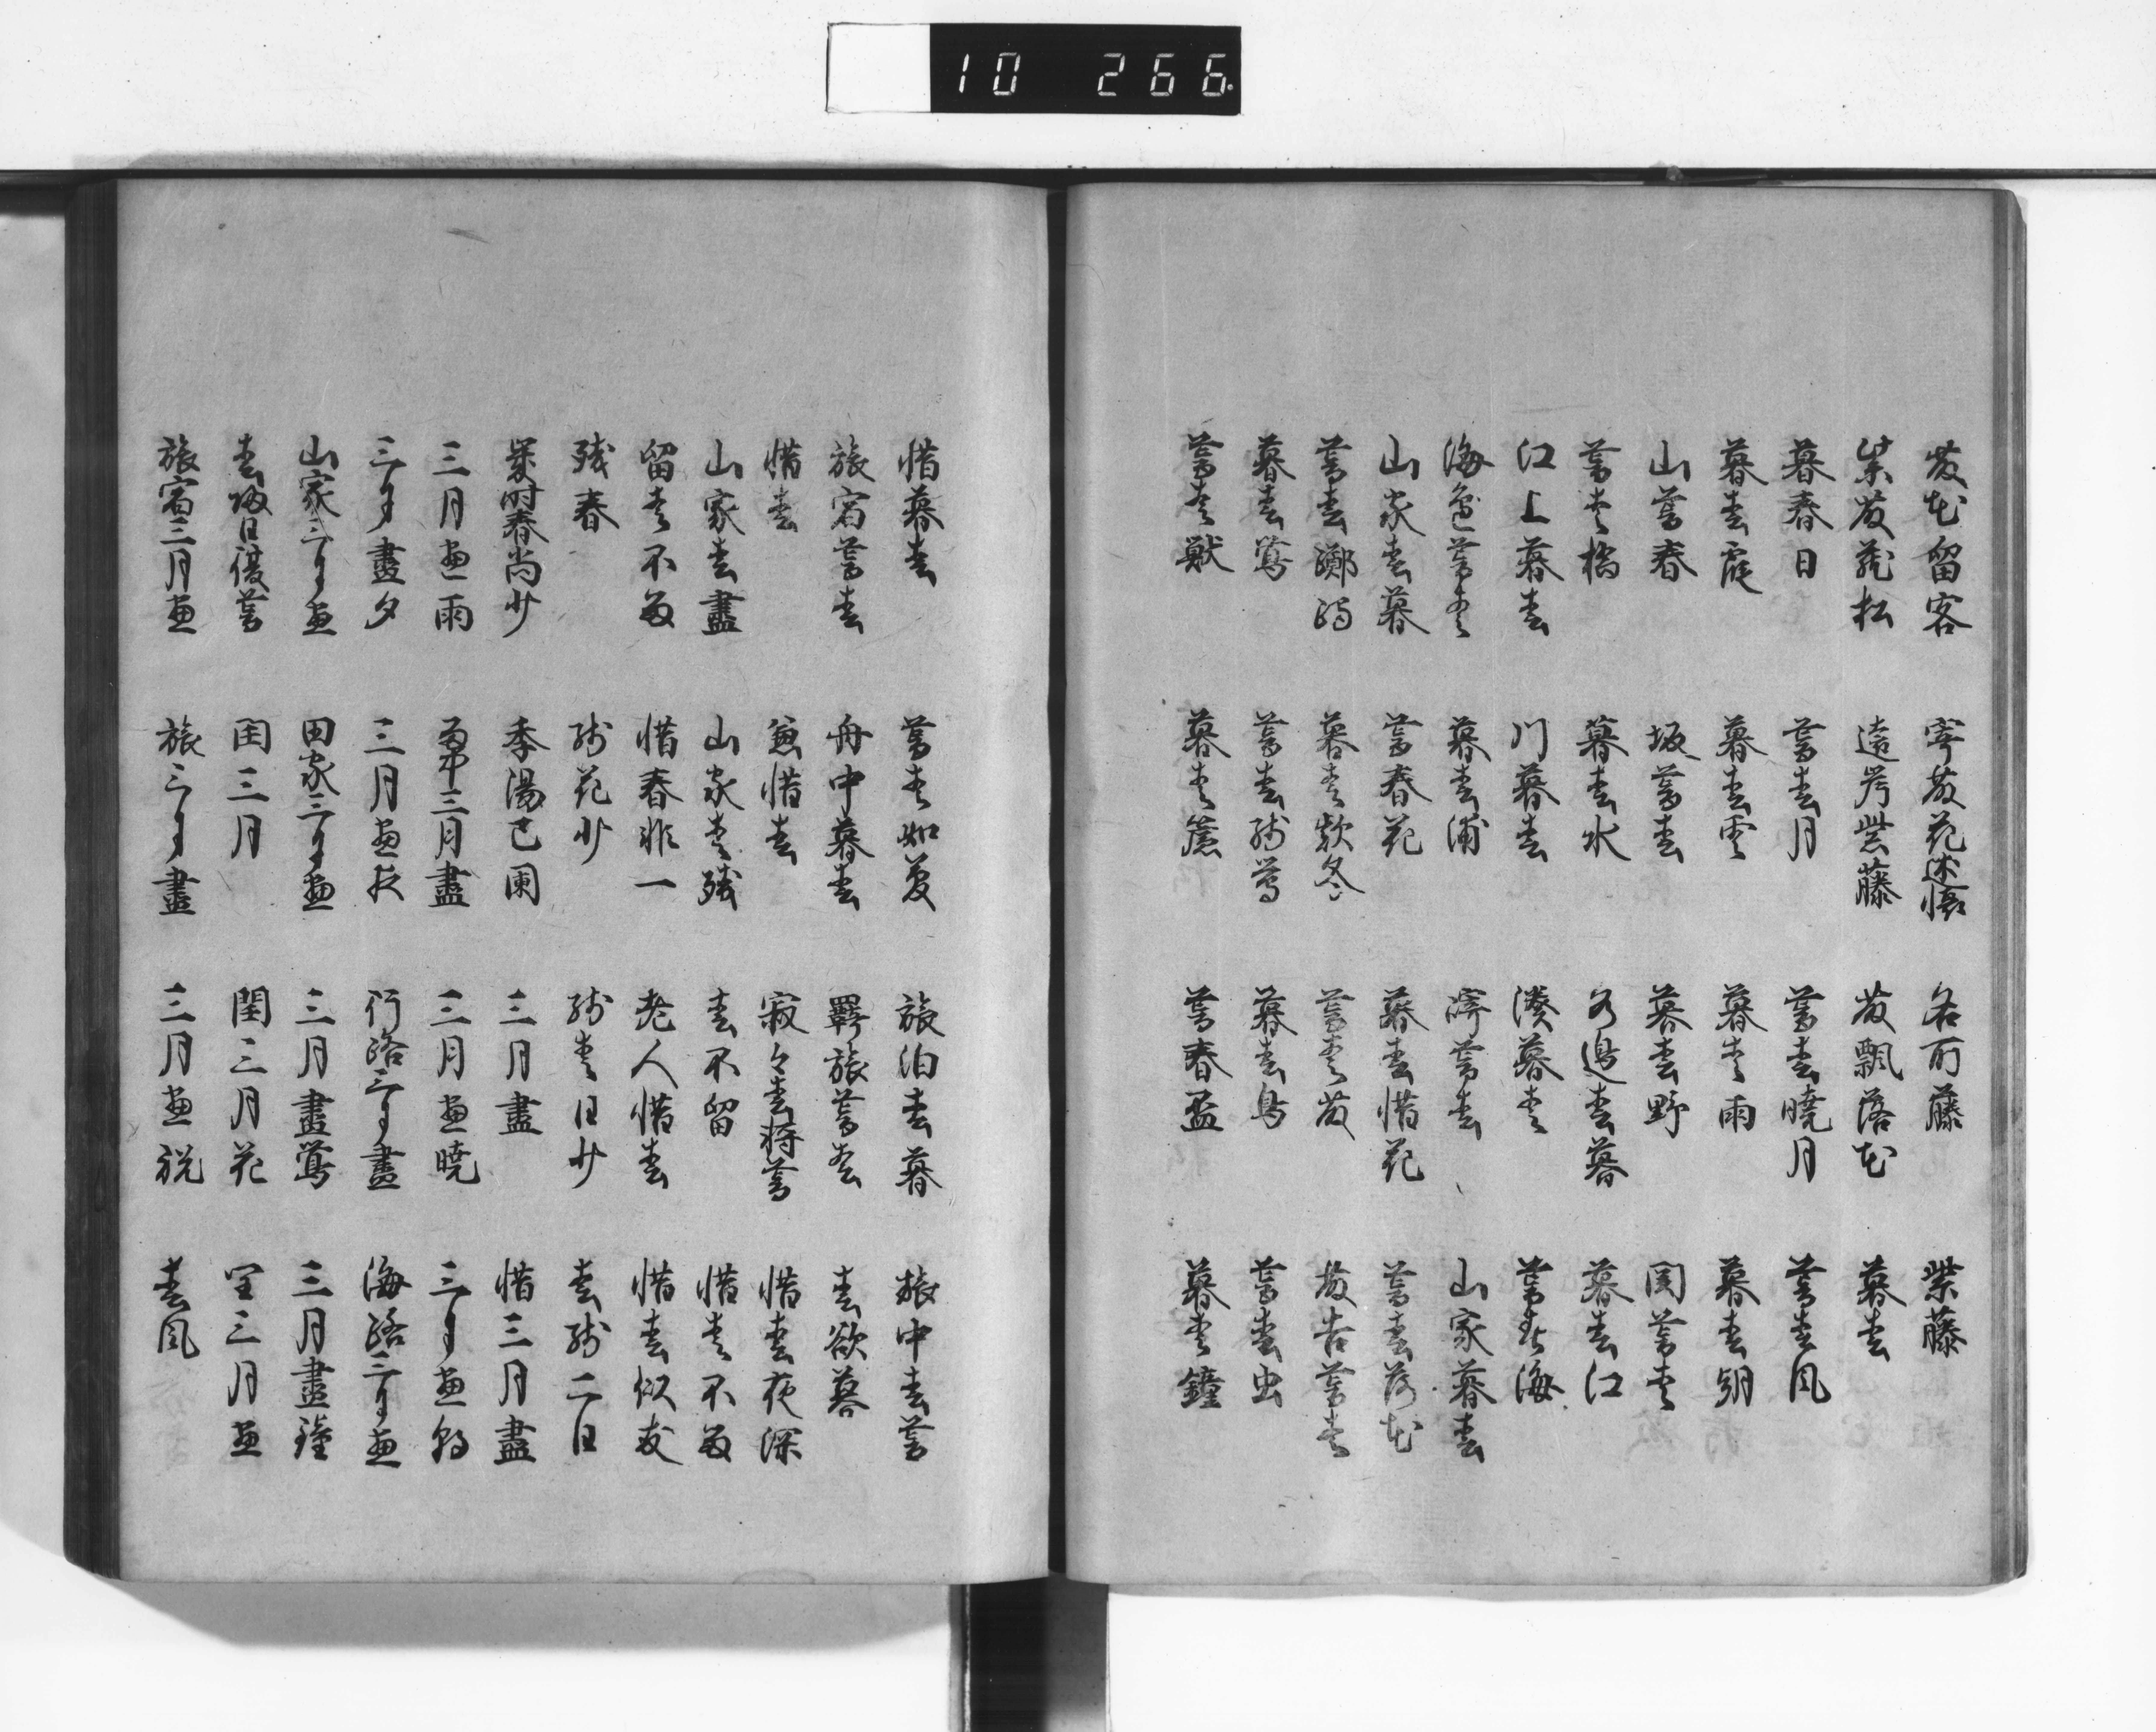 10 266
藤花留客　寄藤花述懐　名所藤　紫藤
紫藤花松　遠岸紫藤　藤飄落花　暮春
暮春日　暮春月　暮春暁月　暮春風
暮春霞　暮春雲　暮春雨　暮春朝
山暮春　坂暮春　暮春野　関暮春
暮春橋　暮春水　水辺春暮　暮春江
江上暮春　川暮春　湊暮春　暮春海
海辺暮春　暮春浦　暮春　山家暮春
山家春暮　暮春花　暮春惜花　暮春落花
暮春躑躅　暮春款冬　暮春藤　藤告暮春
暮春鶯　暮春残鶯　暮春鳥　暮春虫
暮春獣　暮春簾　暮春盃　暮春鐘
惜暮春　暮春如夢　旅泊春暮　旅中春暮
旅宿暮春　舟中暮春　羇旅暮春　春欲暮
惜春　惣惜春　寂々春将暮　惜春夜深
山家春盡　山家春残　春不留　惜春不留
留春不留　惜春非一　老人惜春　惜春似友
残春　残花少　残春日少　春残二日
鶯啼春尚少　季陽已闌　三月盡　惜三月盡
三月盡雨　閏三月盡　三月盡暁　三月盡朝
三月盡夕　三月盡夜　行路三月盡　海路三月盡
山家三月盡　田家三月盡　三月盡鶯　三月盡鐘
春帰日復暮　閏三月　閏三月花　閏三月盡
旅宿三月盡　旅三月盡　三月盡祝　春風